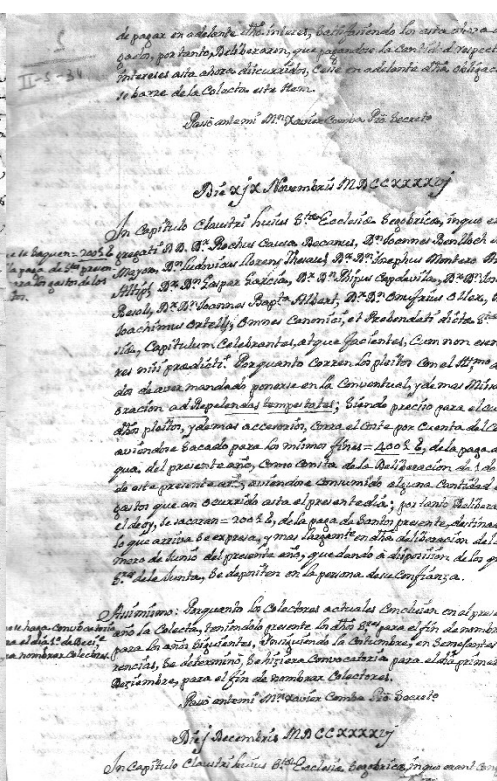 de pagar en adelante dho. interes, satisfaciendo los asta ahora
gados, por tanto, Deliberaron, que pagandose la Cantidad respect
intereses asta ahora discurridos, cesse en adelante dha. obligac
se borre de la Colecta este Item.
Passó ante mi Mn. Xavier Comba Pro. Secreto
II-5-34
Die xjx Novembris MDCCXXXXvj
In Capitulo Claustri huius Stae. Ecclesiae Segobricae, in quo
gregati D.D. Dr. Rochus Decanus, Dn. Joannes Benlloch
Maior, Dn. Ludovicus Llorens Thesaur. Dr. Dn. Josephus Montero
Dr. Dn. Gaspar Garcia, Dr. Dn. Phipus Capdevila, Dr. Dn.
Dr. Dn. Joannes Bapta. Albert, Dr. Dn. Onufrius Oller,
Joachimus Ortells; omnes Canonici, et Prebendati dictae Stae.
siae, Capitulum Celebrantes, atque facientes, Cum non essen
res nisi praedicti. Por quanto corren los pleitos con el Illmo.
dos de aver mandado ponerse en la Conventual, y demas
oracion ad Repelendas tempestates; Siendo preciso para el
dhos pleitos, y demas accesorios, corra el Coste por Cuenta del C
aviendose Sacado para los mismos fines = 400 L, de la paga
gua, del presente año, como Consta de la Deliberacion de 1 de
de este presente año, aviendose Consumido alguna Cantidad
gastos que an ocurrido asta el presente dia; por tanto Delibera
el de oy, se sacaran = 200 L, de la paga de Santos presente, destinad
lo que arriva Se expresa, y mas largamte. en dha deliberacion de
mero de Junio del presente año, quedando a disposicion de los
Sres. de la Junta, Se depositen en la persona de su Confianza.
Se saquen = 200 L
la paga de Stos presen
ra los gastos de los
Assimismo: Por quanto los Colectores actuales Concluien en el prese
año la Colecta, teniendolo presente los dhos Sres. para el fin de nombr
para los años siguientes, insiguiendo la Costumbre, en Semejantes
rencias, Se determinó, Se hiziera Convocatoria para el dia prime
Deziembre, para el fin de nombrar Colectores.
se haga Convocatoria
para el dia 1º de Deze.
para nombrar Colectores
Passó ante mi Mn. Xavier Comba Pro. Secreto
Die j Decembris MDCCXXXXvj
In Capitulo Claustri huius Stae. Ecclesiae Segobricae, in quo erant Con